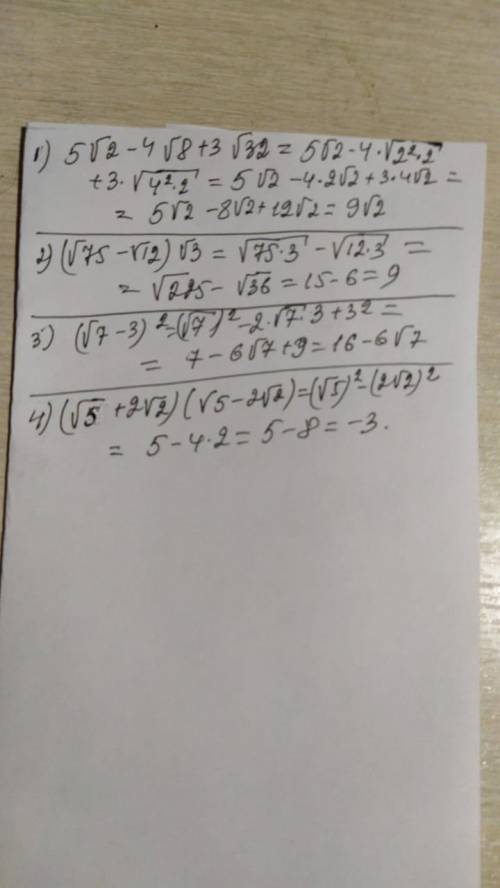 1) 5√2 - 4√8 + 3√32 = 5√2 - 4·√2²·2
+ 3·√4²·2 = 5√2 - 4·2√2 + 3·4√2 =
= 5√2 - 8√2 + 12√2 = 9√2
2) (√75 - √12)√3 = √75·3 - √12·3 =
= √225 - √36 = 15 - 6 = 9
3) (√7 - 3)² = (√7)² - 2·√7·3 + 3² =
= 7 - 6√7 + 9 = 16 - 6√7
4) (√5 + 2√2)(√5 - 2√2) = (√5)² - (2√2)²
= 5 - 4·2 = 5 - 8 = -3.